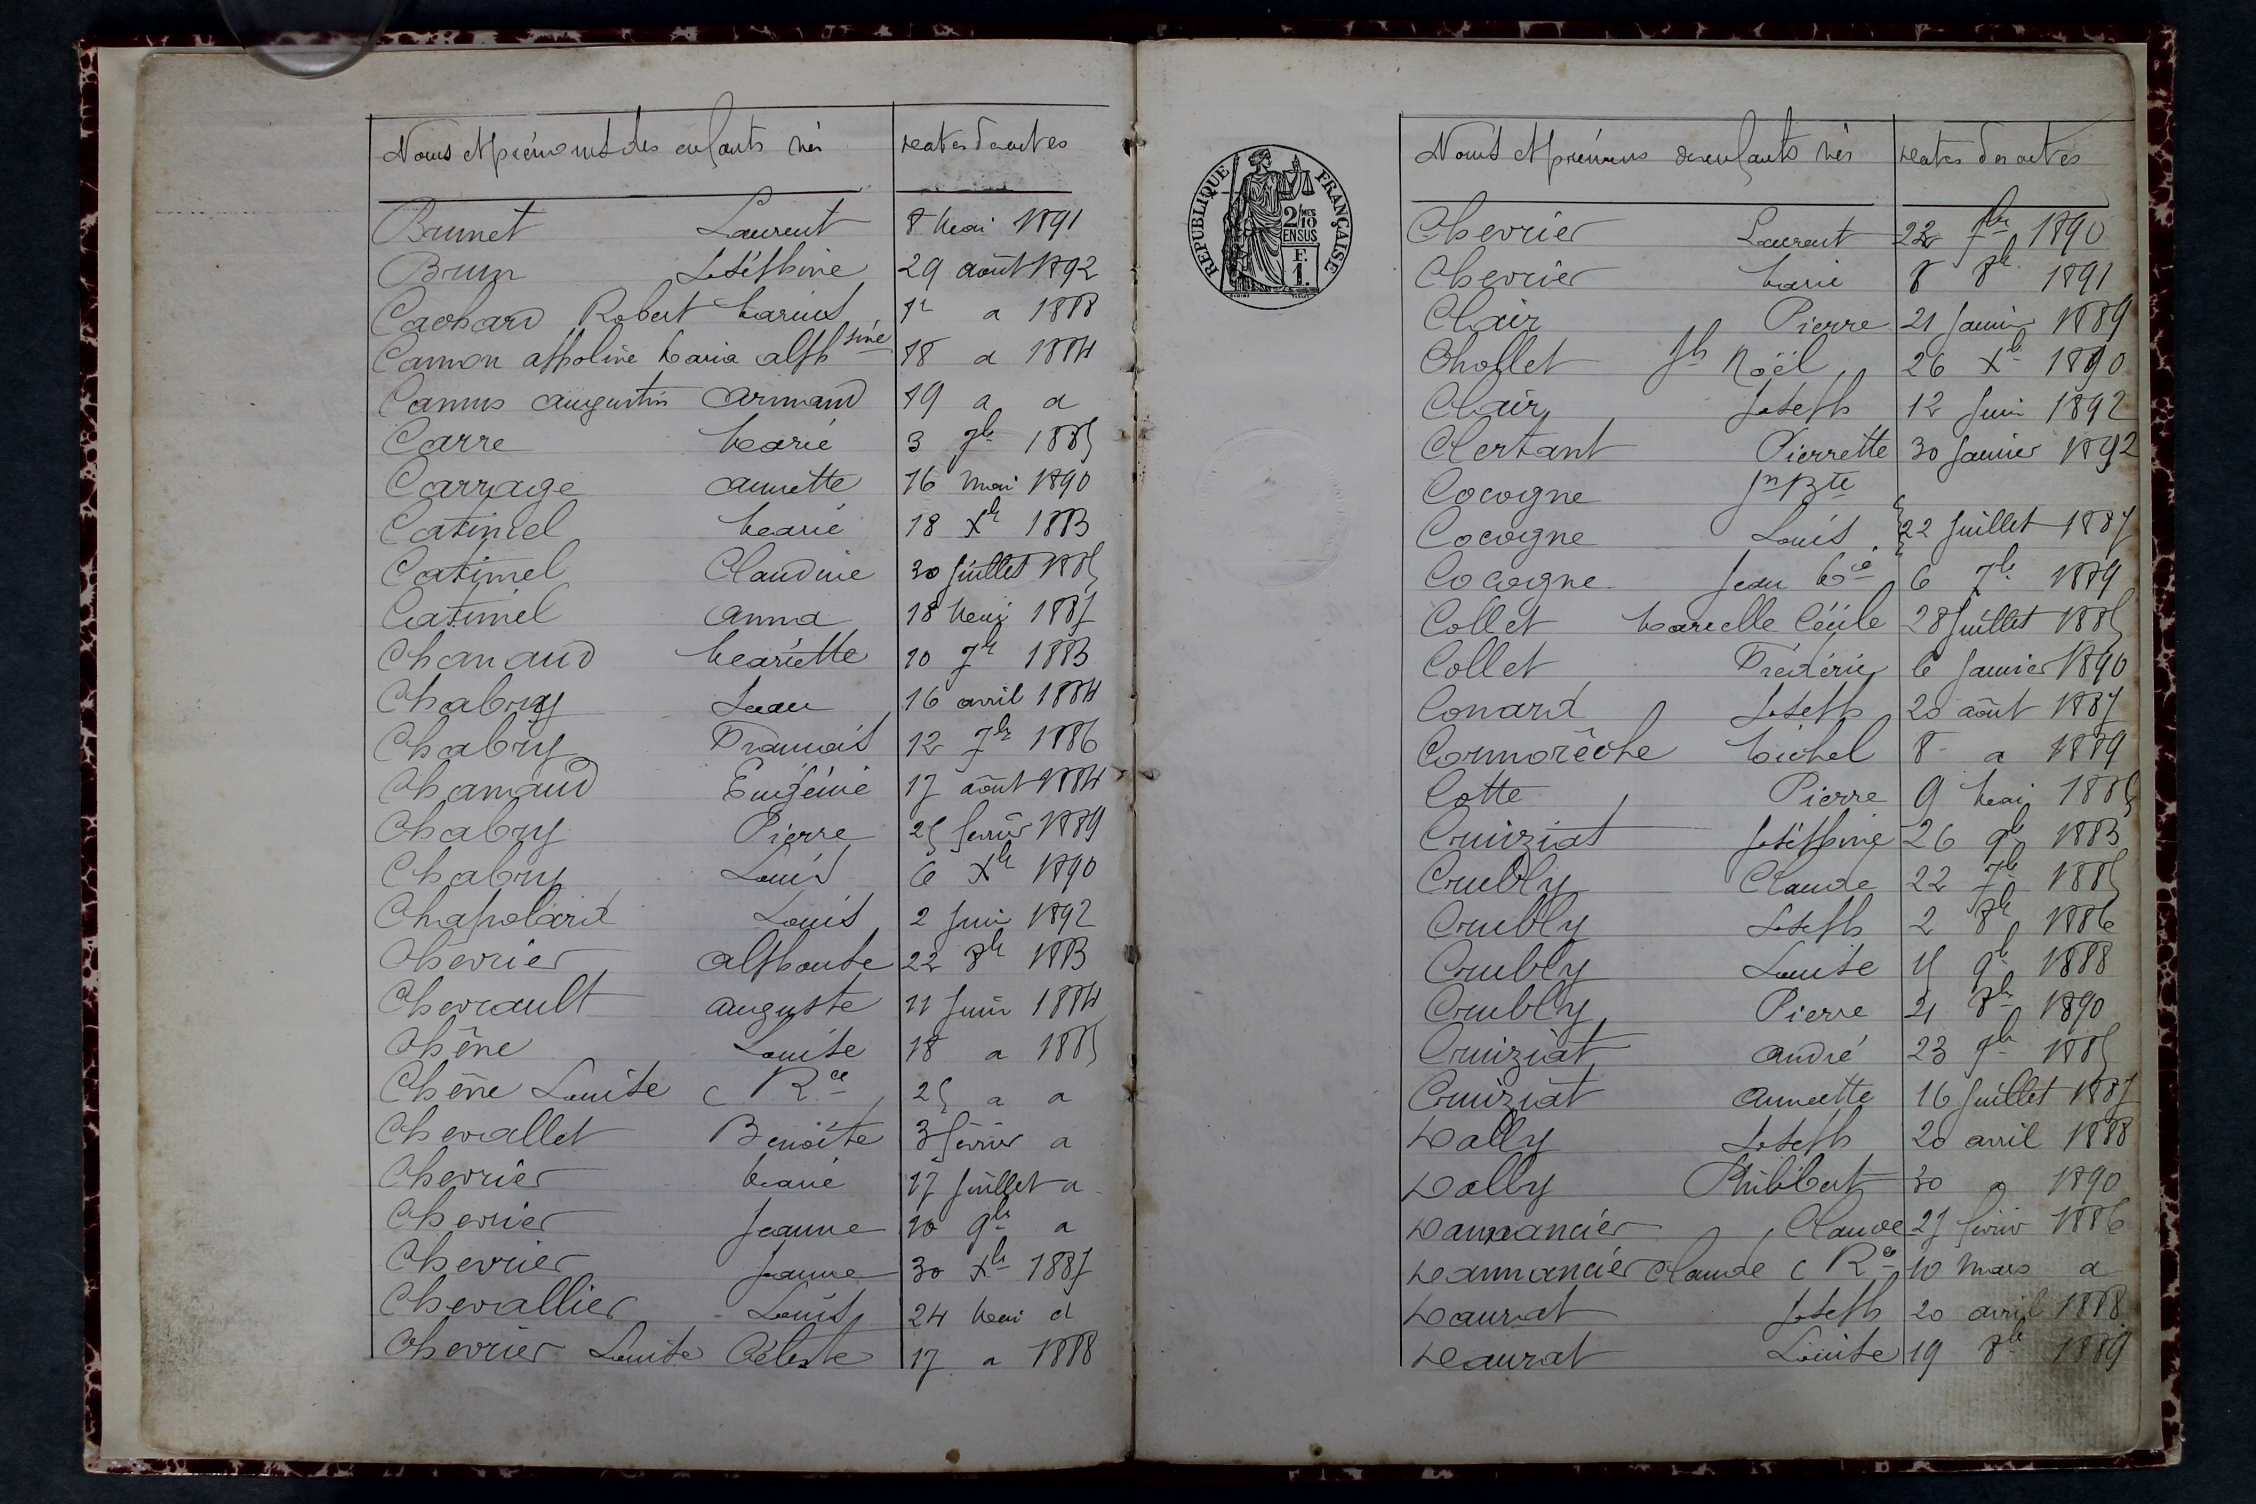 Noms et prénoms des enfants nés Dates des actes
Brunet Laurent 8 Mai 1891
Brun Joséphine 29 août 1892
Cachard Robert Marius 1r a 1888
Camon appoline Maria alphsine 18 a 1884
Camus augustin armand 19 a a
Carre Marie 3 7bre 1885
Carrage annette 16 mai 1890
Catimel Marie 18 Xbre 1883
Catimel Claudine 30 Juillet 1885
Catimel anna 18 Mai 1887
Chanaud Mariette 10 7bre 1883
Chabry Jean 16 avril 1884
Chabry François 12 7bre 1886
Chanaud Eugénie 17 août 1884
Chabry Pierre 25 février 1889
Chabry Louis 6 Xbre 1890
Chapolard Louis 2 Juin 1892
Chevrier alphonse 22 8bre 1883
Chevrault auguste 11 Juin 1884
Chêne Louise 18 a 1885
Chêne Louise c Rce 25 a a
Chevallet Benoîte 3 février a
Chevrier Marie 17 Juillet a
Chevrier Jeanne 10 9bre a
Chevrier Jeanne 30 Xbre 1887
Chevallier Louis 24 Mai d
Chevrier Louise Céleste 17 a 1888
Noms et prénoms des enfants nés Dates des actes
REPUBLIQUE FRANÇAISE
2/10 MES
EN SUS
F.
1.
Chevrier Laurent 22 7bre 1890
Chevrier Marie 8 8bre 1891
Clair Pierre 21 Janvier 1889
Chollet Jh Noël 26 Xbre 1890
Clair Joseph 12 Juin 1892
Clertant Pierrette 30 Janvier 1892
Cocogne Jn Bte
Cocogne Louis 22 Juillet 1887
Cocogne Jean Mie 6 7bre 1889
Collet Marcelle Cécile 28 Juillet 1885
Collet Frédéric 6 Janvier 1890
Conard Joseph 20 août 1887
Cormorèche Michel 8 a 1889
Cotte Pierre 9 Mai 1885
Cruiziat Joséphine 26 9bre 1883
Crubly Claude 22 7bre 1885
Crubly Joseph 2 8bre 1886
Crubly Louise 15 9bre 1888
Crubly Pierre 21 8bre 1890
Cruiziat andré 23 7bre 1885
Cruiziat annette 16 Juillet 1887
Dally Joseph 20 avril 1888
Dally Philibert 30 a 1890
Dannancier Claude 25 février 1886
Dannancier Claude c Rce 10 Mars a
Daurat Joseph 20 avril 1888
Daurat Louise 19 8bre 1889